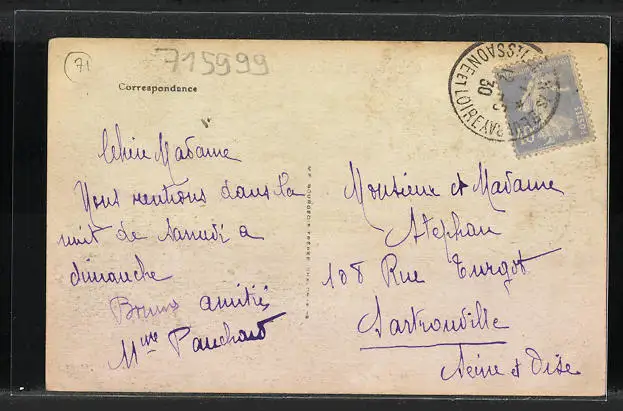 71
715999
Correspondance
Chère Madame
Nous rentrons dans la
nuit de Samedi a
dimanche
Bonnes amitiés
Mme Panchaud
Monsieur et Madame
Stephan
108 Rue Turgot
Sartrouville
Seine et Oise
SAONE ET LOIRE
30
POSTES